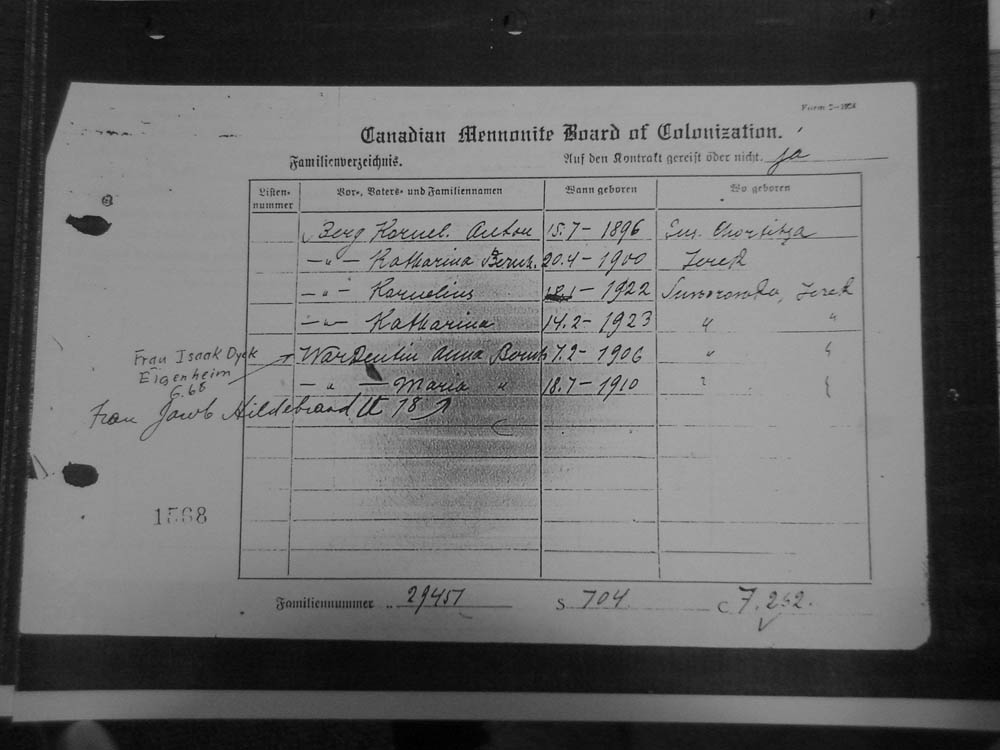 Form 2-1924
Canadian Mennonite Board of Colonization.
Familienverzeichnis. Auf den Kontrakt gereist oder nicht. ja
Listen-nummer Vor-, Vaters- und Familiennamen Wann geboren Wo geboren
Berg Kornel. Anton 15.7-1896 Ins. Chortitza
-"- Katharina Bernh. 20.4-1900 Terek
-"- Kornelius 18.1-1922 Suworowka, Terek
-"- Katharina 14.2-1923 " "
Frau Isaak Dyck
Eigenheim
G.68
Warkentin Anna Bernh 7.2-1906 " "
-"- Maria " 18.7-1910 " "
Frau Jacob Hildebrandt 78
1568
Familiennummer 29451 S 704 C 7.252.